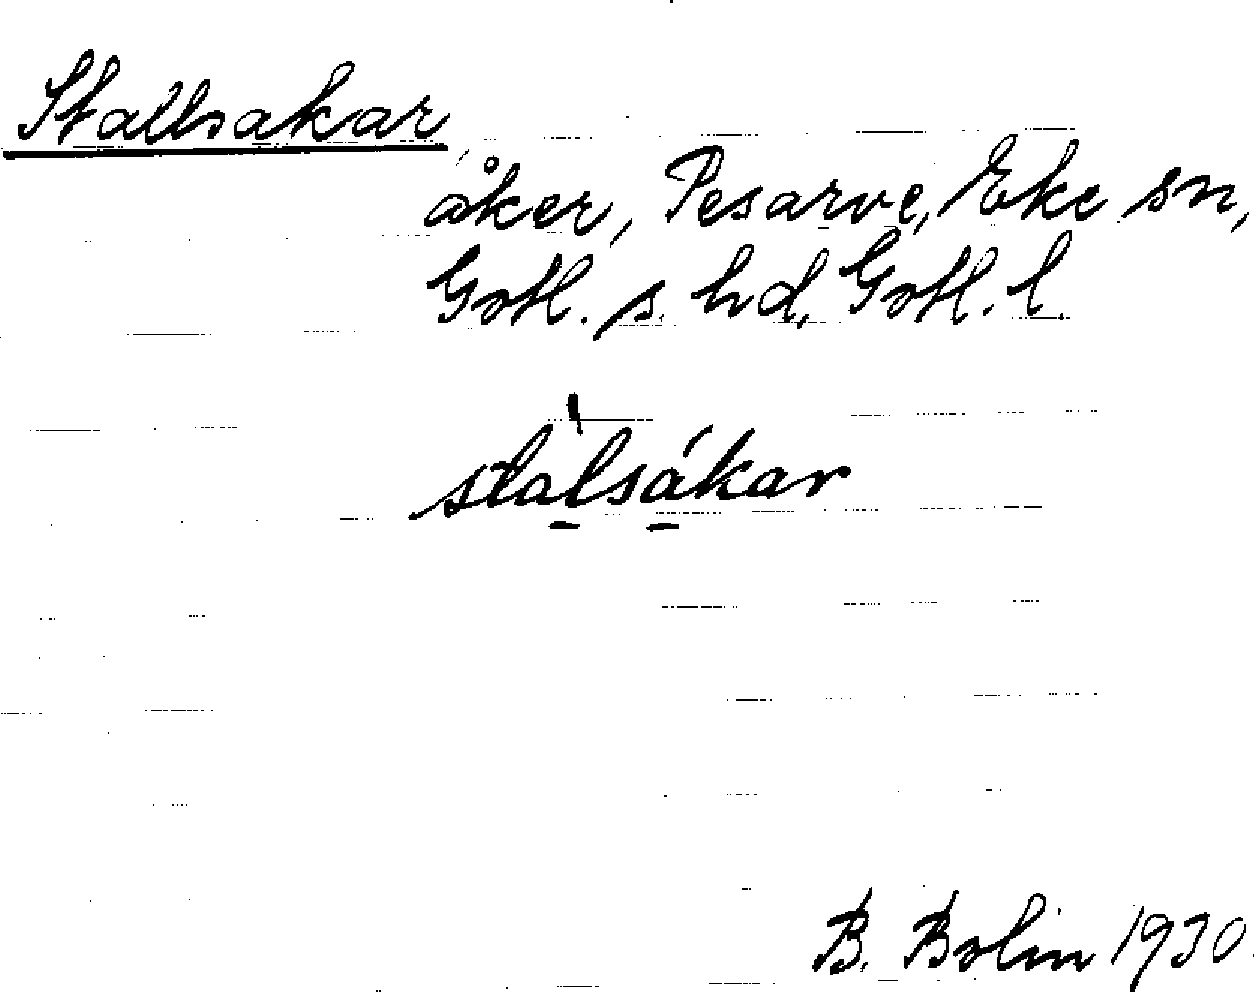 Stallsakar
åker, Pesarve, Eke sn,
Gotl. s. hd, Gotl. l.
sta̱̍lsá̱kar
B. Bolin 1930.